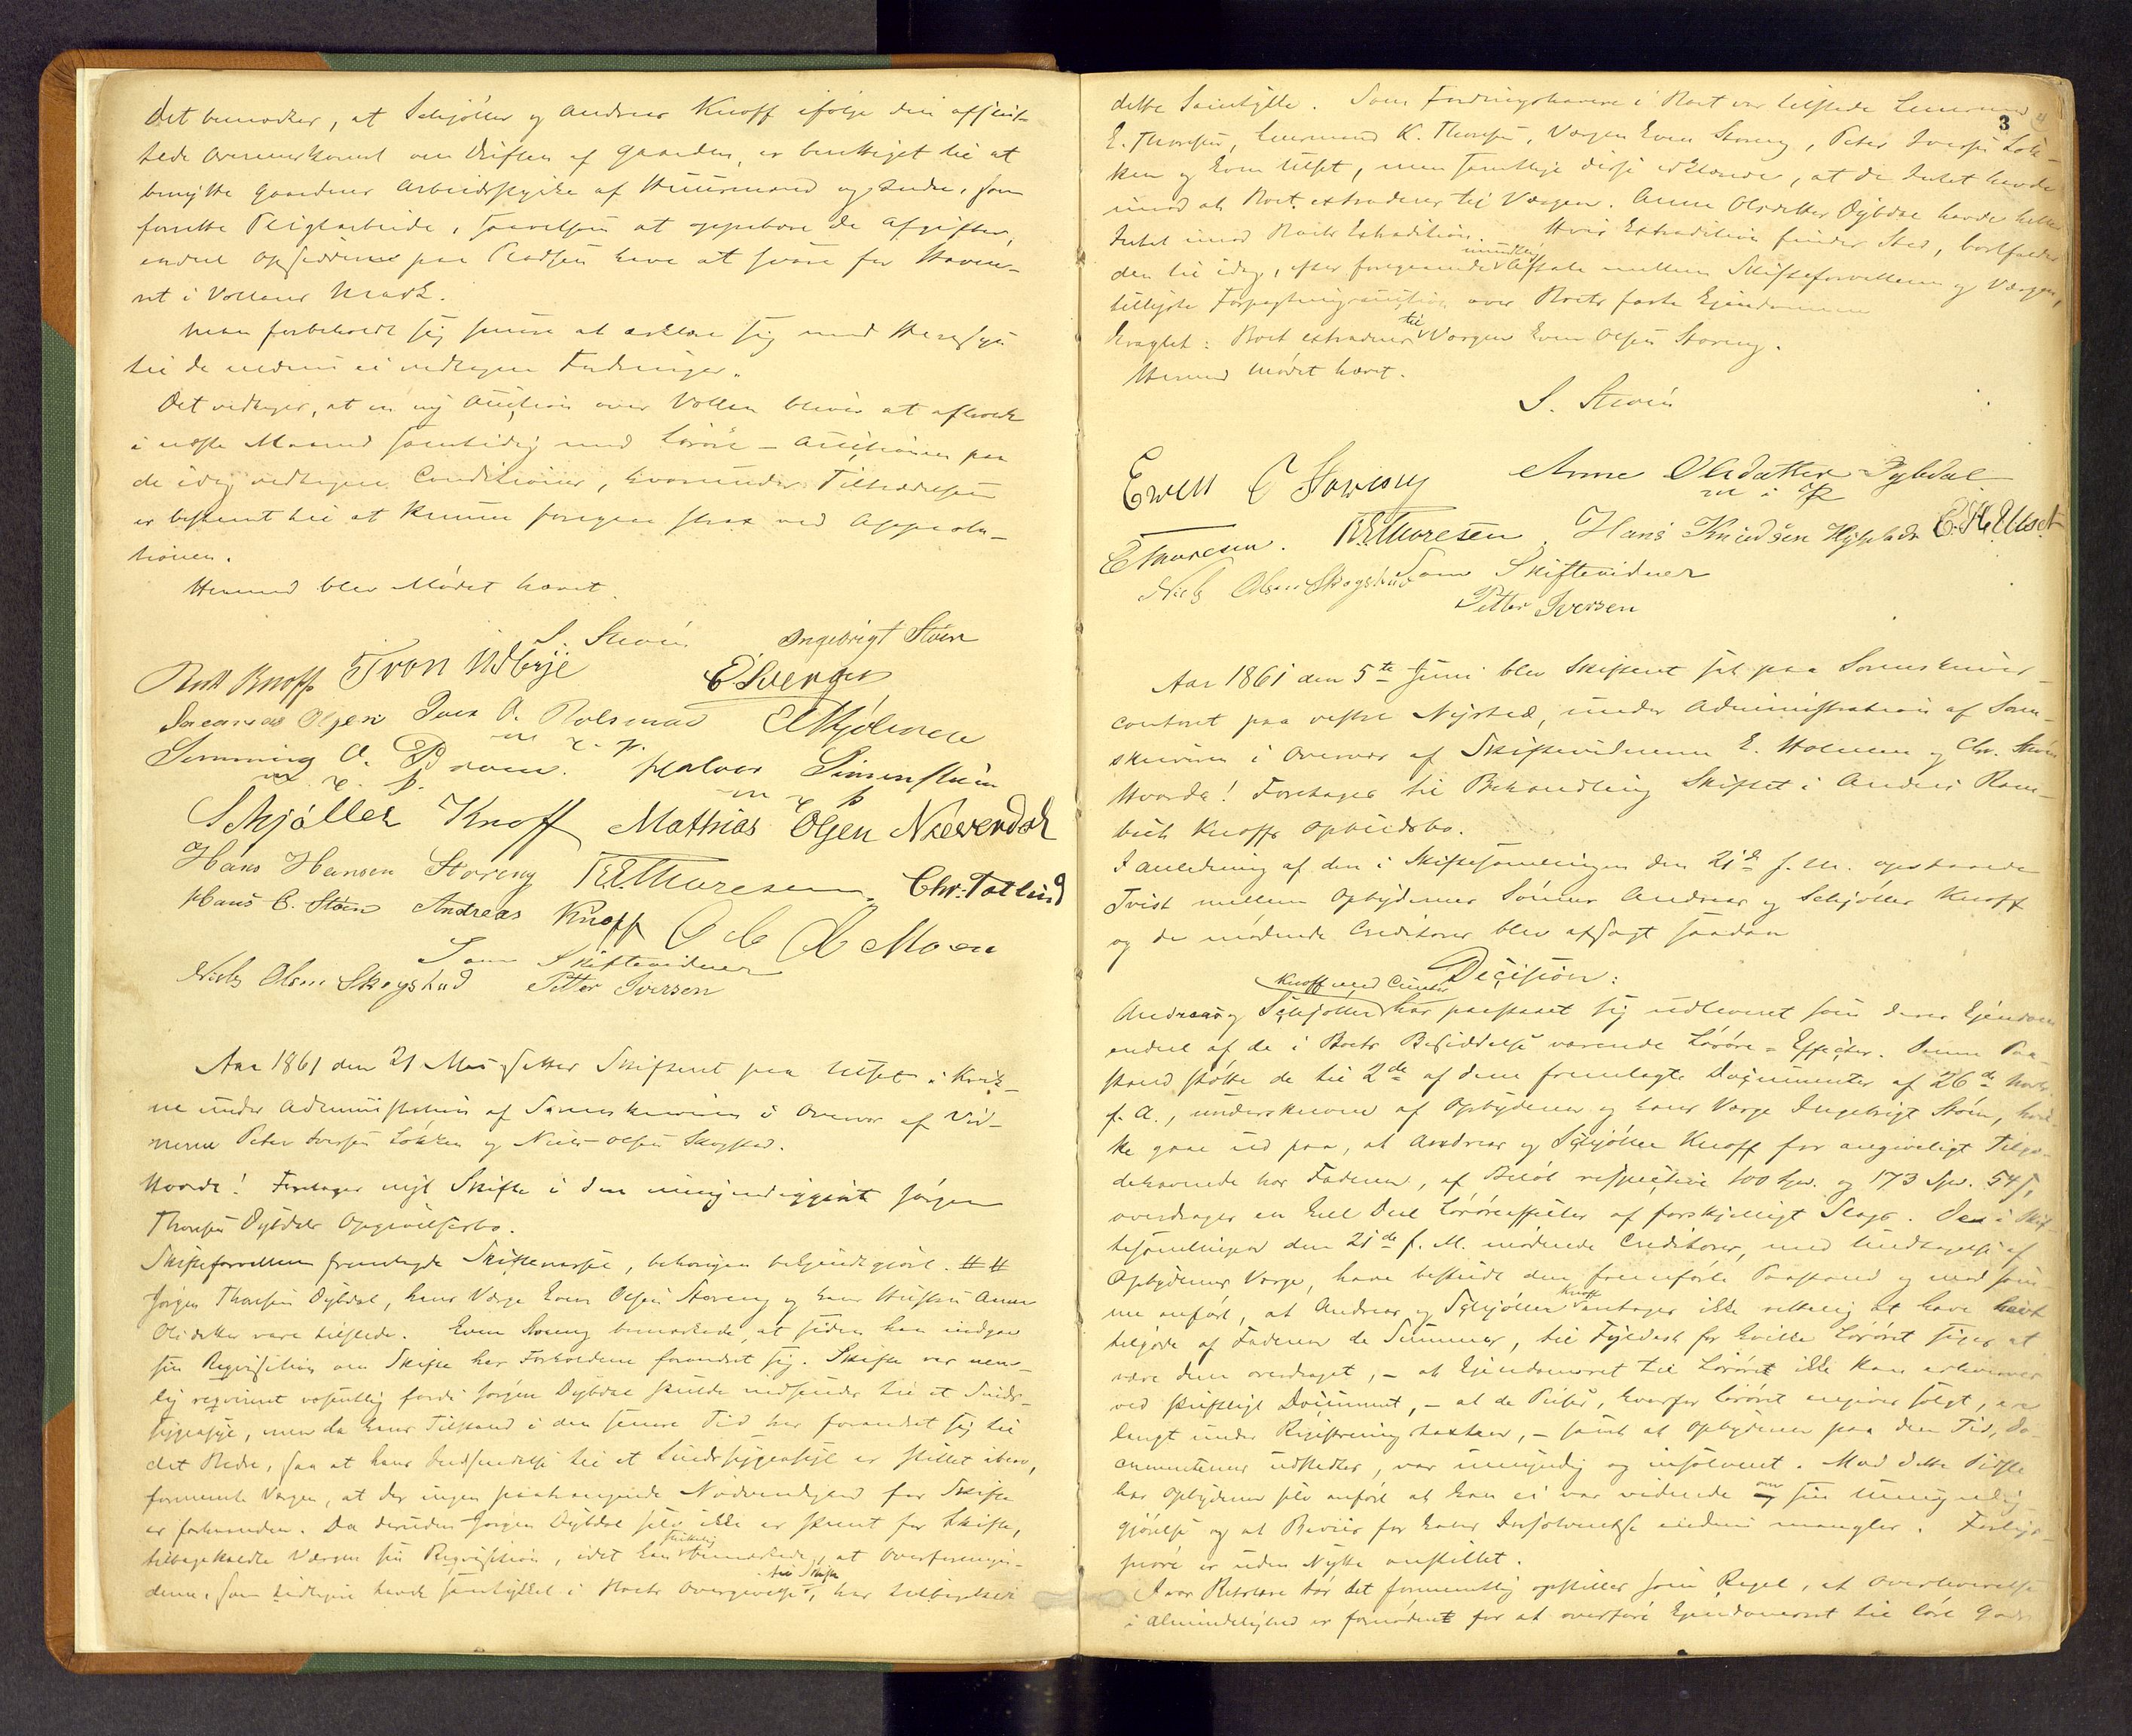 Det bemærkes, at Schjøller og Andreas Knoff ifølge den afslut-
tede Overenskomst om Driften af Gaarden, er berettiget til at
benytte Gaardens Arbeidsstykke af Huusmænd og Andre, som
forrette Pligtarbeide, saavelsom at oppebære de Afgifter,
endeel Opsiddere paa Pladsen have at svare for Havne-
ret i Vollans Mark.
Man forbeholdt sig senere at erklære sig med Hensyn
til de endnu ei vedtagne Fordringer.
Det vedtoges, at en ny Auction over Vollan bliver at afholde
i næste Maaned samtidig med Løsøre-Auctionen paa
de idag vedtagne Conditioner, hvorunder Tiltrædelsen
er bestemt til at kunne foregaae strax ved Approba-
tionen.
Hermed blev Mødet hævet.
S. Steen Ingebrigt Støen
Rasm Knoff Tron Udbye E. Sverger
Andreas Olsen Iver O. Rolsmo E Hjolmen
m. e. p.
Simming O. Broen. Halvor Simensthuen
m. e. p. m e p
Schjøller Knoff Mathias Olsen Næverdal
Hans Hansen Storeng K. E. Thoresen Chr. Tatlid
Hans E. Støen Andreas Knoff O Moen
Som Skiftevidner
Niels Olsen Skogstad Petter Iversen
Aar 1861 den 21 Mai sattes Skifteret paa Ulset i Kvik-
ne under Administration af Sorenskriveren i Overvær af Vid-
nerne Peter Iversen Løkken og Niels Olsen Skogstad.
Hvorda! Foretages nyt Skifte i den umyndiggjorte Jørgen
Thoresen Dybdals Opgivelsesbo.
Skifteforvalteren fremlagde Skiftevarsel, behørigen bekjendtgjort. ##
Jørgen Thoresen Dybdal, hans Værge Even Olsen Storeng og hans Hustru Anne
Olsdatter vare tilstede. Even Storeng bemærkede, at siden han indgav
sin Reqvisition om Skifte har Forholdene forandret sig. Skifte var nem-
lig reqvireret væsentlig fordi Jørgen Dybdal skulde indsendes til et Sinds-
sygeasyl, men da hans Tilstand i den senere Tid har forandret sig til
det Bedre, saa at hans Indsendelse til et Sindssygeasyl er stillet ibero,
formeente Værgen, at der ingen paatrængende Nødvendighed for Skifte
er forhaanden. Da desuden Jørgen Dybdal selv ikke er stemt for Skifte,
tilbagekaldte Værgen sin Reqvisition, idet han bemærkede, at Overformynde-
derne, som tidligere havde samtykket i Boets Overgivelse til Skifte, har tilbagekaldt
3
dette Samtykke. Som Fordringshavere i Boet var tilstede Lensmand
E. Thoresen, Lensmand K. Thoresen, Værgen Even Storeng, Peter Iversen Løk-
ken og Even Ulset, men samtlige disse erklærede, at de Intet havde
imod at Boet extraderes til Værgen. Anne Olsdatter Dybdal havde heller
Intet imod Boets Extradition. Hvis Extradition finder Sted, bortfalder
den til idag, efter foregaaende mundtlig Aftale mellem Skifteforvalteren og Værgen,
tillyste Forpagtningsauction over Boets faste Eiendomme
Eragtet: Boet extraderes til Værgen Even Olsen Storeng.
Hermed Mødet hævet.
S. Steen
Even O Storeng Anne Olsdatter Dybdal
m i P
E Thoresen. K. E. Thoresen. Hans Knudsen E. H. Ulset
Niels Olsen Skogstad Som Skiftevidner
Petter Iversen
Aar 1861 den 5te Juni blev Skifteret sat paa Sorenskriver-
contoret paa vestre Nysted, under Administration af Soren-
skriveren i Overvær af Skiftevidnerne E. Holmen og Chr. Steen
Hvorda! Foretages til Behandling Skiftet i Anders Ram-
busk Knoffs Opbudsbo.
I Anledning af den i Skiftesamlingen den 21de f. M. opstaaede
Tvist mellem Opbyderens Sønner Andreas og Schjøller Knoff
og de mødende Creditorer blev afsagt saadan
Decision:
Andreas og Schjøller Knoff med Curator har paastaaet sig udleveret som deres Eiendom
endeel af de i Boets Besiddelse værende Løsøre-Effecter. Denne Paa-
stand støtte de til 2de af dem fremlagte Documenter af 26de Novbr
f. A., underskrevne af Opbyderen og hans Værge Ingebrigt Støen, hvil-
ke gaae ud paa, at Andreas og Schjøller Knoff for angiveligt Tilgo-
dehavende hos Faderen, af Beløb respective 100 Spd. og 173 Spd. 54 s,
overdrages en heel Deel Løsøreeffecter af forskjelligt Slags. De i Skif-
tesamlingen den 21de f. M. mødende Creditorer, med Undtagelse af
Opbyderens Værge, have bestridt den fremførte Paastand og mod sam-
me anført, at Andreas og Schjøller Knoff antages ikke rettelig at have havt
tilgode af Faderen de Summer, til Fyldest for hvilke Løsøret siges at
være dem overdraget, – at Eiendomsret til Løsøret ikke kan erhverves
ved skriftligt Document, – at de Priser, hvorfor Løsøret angives solgt, ere
langt under Registreringstaxten, – samt at Opbyderen paa den Tid, Do-
cumenterne udstedtes, var umyndig og insolvent. Mod dette Sidste
har Opbyderen selv anført at han ei var vidende om sin Umyndig-
gjørelse og at Beviis for hans Insolventse endnu mangler. Forligs-
prøve er uden Nytte anstillet.
I vor Retslære tør det formeentlig opstilles som Regel, at Overleverelse
i Almindelighed er fornøden for at overføre Eiendomsret til løst Gods